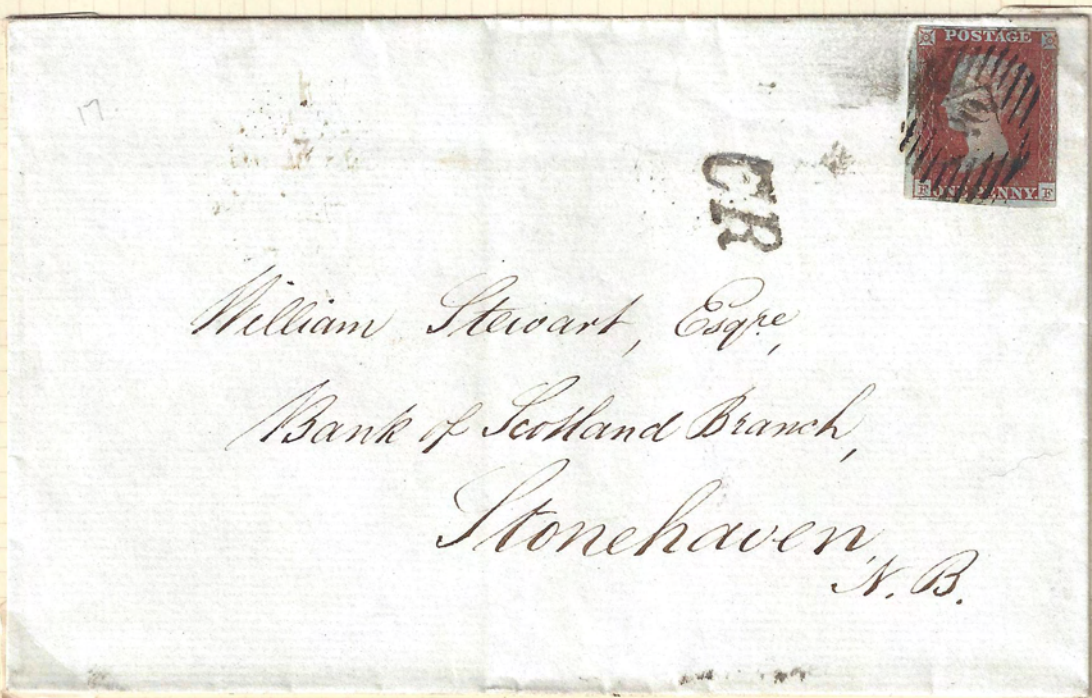 POSTAGE
ONE PENNY
F
17
CR
William Stewart, Esqre,
Bank of Scotland Branch,
Stonehaven,
N. B.